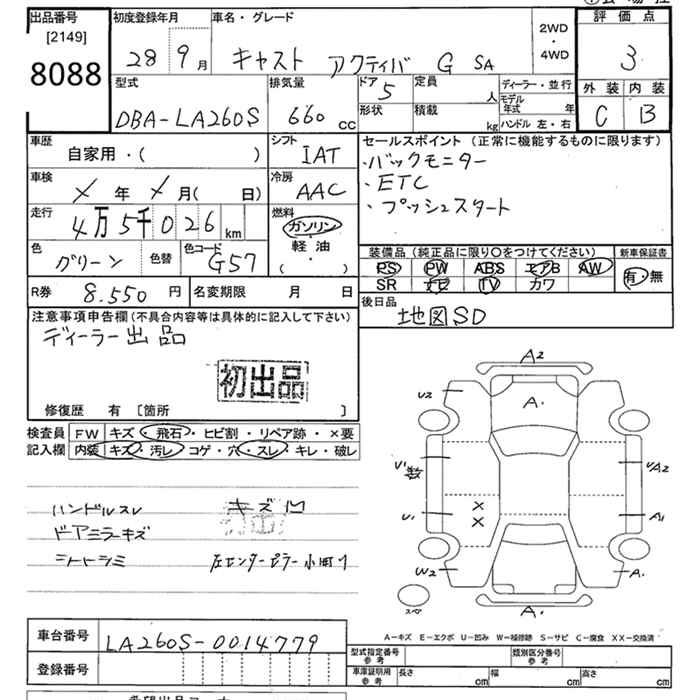 出品番号 [2149] 8088
初度登録年月 28年 9月
車名・グレード キャスト アクティバ G SA
2WD・4WD
評価点 3
外装 C 内装 B
型式 DBA-LA260S
排気量 660 cc
ドア 5 形状
定員 人 積載 kg
ディーラー・並行
モデル年式 年
ハンドル 左・右
車歴 自家用・( )
シフト IAT
車検 × 年 × 月( 日)
冷房 AAC
走行 4万5千026 km
燃料 ガソリン・軽油・( )
色 グリーン 色替
色コード G57
R券 8.550 円 名変期限 月 日
セールスポイント (正常に機能するものに限ります)
・バックモニター
・ETC
・プッシュスタート
装備品(純正品に限り○をつけてください)
PS PW ABS エアB AW
SR ナビ TV カワ
新車保証書 有・無
後日品 地図SD
注意事項申告欄(不具合内容等は具体的に記入して下さい)
ディーラー出品
初出品
修復歴 有 [箇所 ]
検査員記入欄
FW キズ・飛石・ヒビ割・リペア跡・×要
内装 キズ・汚レ・コゲ・穴・スレ・キレ・破レ
ハンドルスレ キズ凹
ドアミラーキズ
シートシミ 左センターピラー小凹1
A2
U2 A.
U1数 UA2
U1 × A1
×
W2 A.
スペ A.
A-キズ E-エクボ U-凹み W-補修跡 S-サビ C-腐食 XX-交換済
車台番号 LA260S-0014779
登録番号
型式指定番号 参考 類別区分番号 参考
車庫証明用 参考 長さ cm 幅 cm 高さ cm